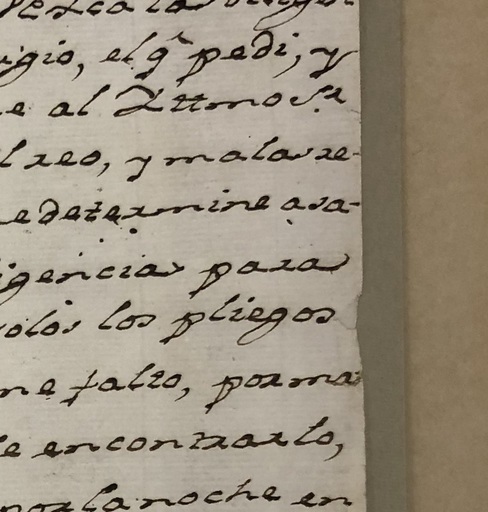 ugio, el q.e pedi, y
e al Yttmo S.r
l reo, y malas re-
e determine a sa-
igencias para
olos los pliegos
ne falto, por ma
e encontrarlo,
por la noche en